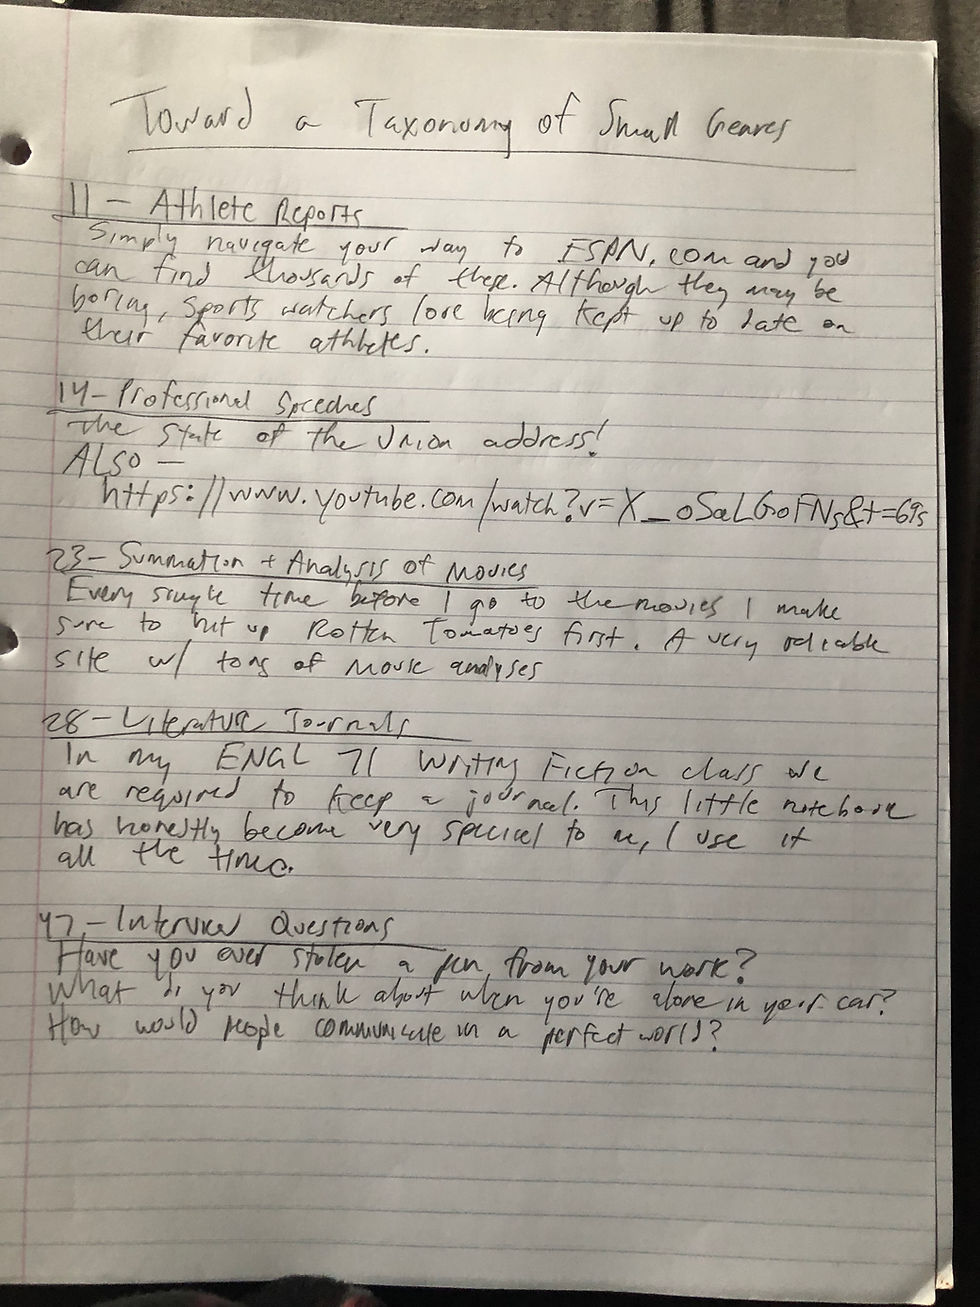 Toward a Taxonomy of Small Genres
11 - Athlete Reports
Simply navigate your way to ESPN.com and you
can find thousands of these. Although they may be
boring, sports watchers love being kept up to date on
their favorite athletes.
14 - Professional Speeches
The State of the Union address!
ALSO -
https://www.youtube.com/watch?v=X_oSaLGoFNs&t=69s
23 - Summation + Analysis of Movies
Every single time before I go to the movies I make
sure to hit up Rotten Tomatoes first. A very reliable
site w/ tons of movie analyses
28 - Literature Journals
In my ENGL 71 Writing Fiction class we
are required to keep a journal. This little notebook
has honestly become very special to me, I use it
all the time.
47 - Interview Questions
Have you ever stolen a pen from your work?
What do you think about when you're alone in your car?
How would people communicate in a perfect world?